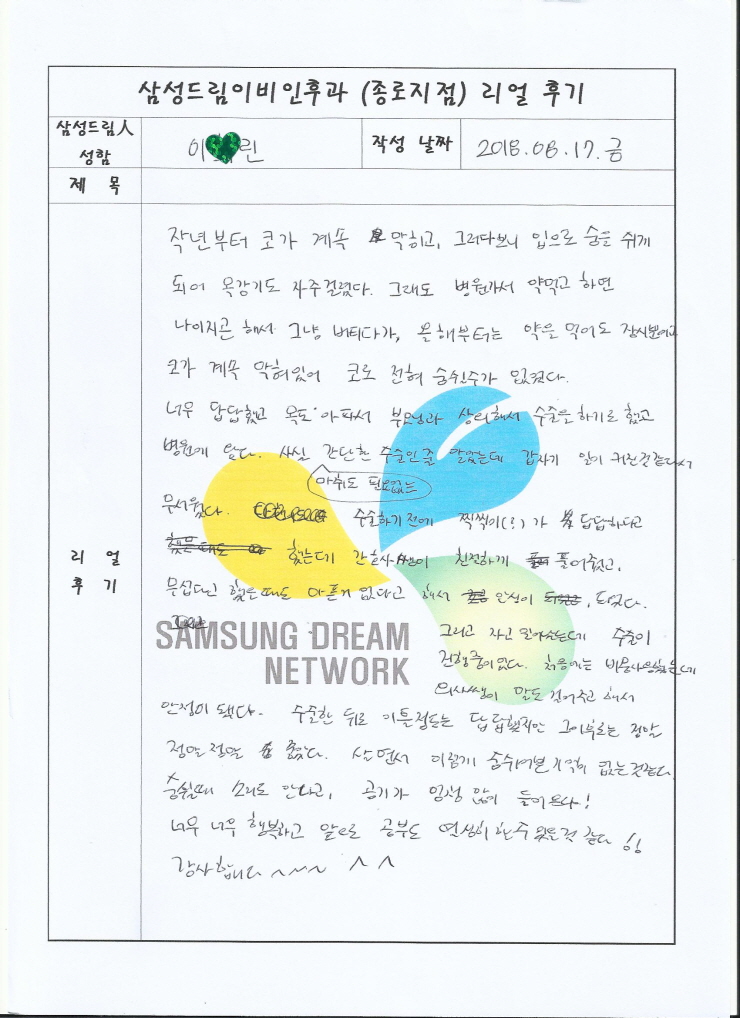 삼성드림이비인후과 (종로지점) 리얼 후기
삼성드림人 성함
이 린
작성 날짜
2018.08.17.금
제 목
리 얼 후 기
작년부터 코가 계속 막히고, 그러다보니 입으로 숨을 쉬게
되어 목감기도 자주걸렸다. 그래도 병원가서 약먹고 하면
나아지곤 해서 그냥 버티다가, 올해부터는 약을 먹어도 잠시뿐이고
코가 계속 막혀있어 코로 전혀 숨쉴수가 없었다.
너무 답답했고 목도 아파서 부모님과 상의해서 수술을 하기로 했고
병원에 왔다. 사실 간단한 수술인줄 알았는데 갑자기 일이 커진것같다서
마취도 필요없는
무서웠다. 수술하기 전에 찍찍이(?)가 답답하다고
했는데 간호사쌤이 친절하게 풀어줬고,
무섭다고 했을때도 아픈거 없다고 해서 안심이 되었다.
그리고 자고 일어났는데 수술이
진행중이었다. 처음에는 비몽사몽했는데
의사쌤이 말도 걸어주고 해서
SAMSUNG DREAM
NETWORK
안정이 됐다. 수술한 뒤로 이틀정도는 답답했지만 그이후로는 정말
정말 정말 좋았다. 살면서 이렇게 숨쉬어본 기억이 없는것같다.
숨쉴때 소리도 안나고, 공기가 엄청 많이 들어온다!
너무 너무 행복하고 앞으로 공부도 열심히 할수 있을것 같다 !!
감사합니다 ~~~ ^ ^